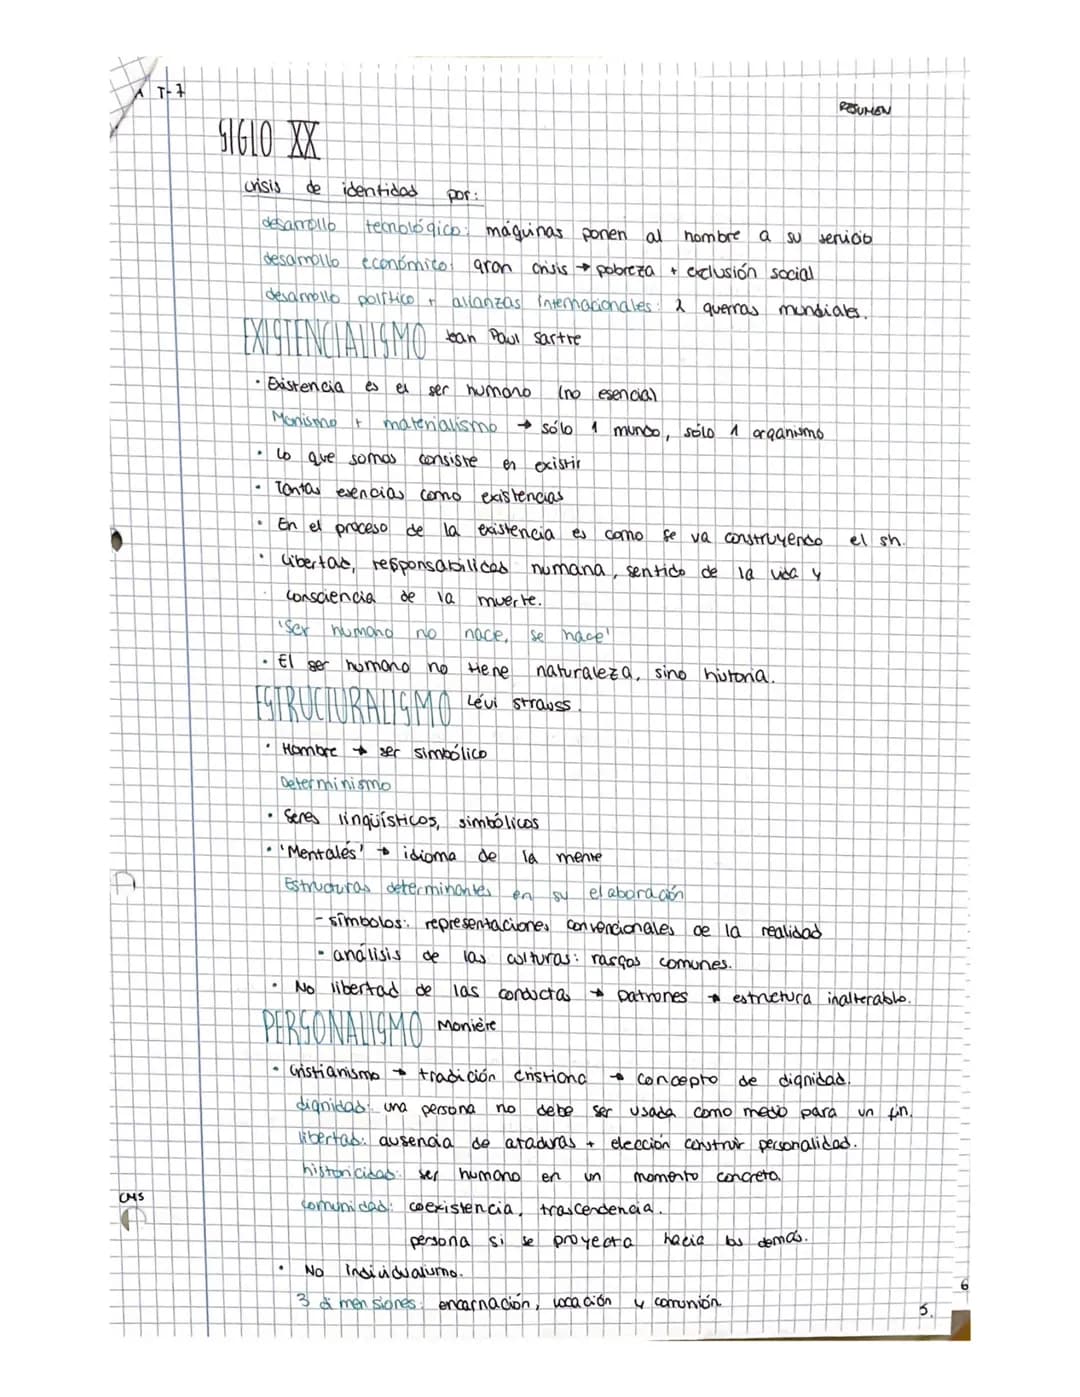 T-7
RESUMEN
SIGLO XX
crisis de identidad por:
desarrollo tecnológico: máquinas ponen al hombre a su servicio
desarrollo económico: gran crisis → pobreza + exclusión social
desarrollo político + alianzas internacionales: 2 guerras mundiales.
EXISTENCIALISMO Jean Paul Sartre
· Existencia es el ser humano (no esencia)
Monismo + materialismo → sólo 1 mundo, sólo 1 organismo
· Lo que somos consiste en existir
· Tantas esencias como existencias
· En el proceso de la existencia es como se va construyendo el sh.
· Libertad, responsabilidad humana, sentido de la vida y
consciencia de la muerte.
'Ser humano no nace, se hace'
· El ser humano no tiene naturaleza, sino historia.
ESTRUCTURALISMO Lévi Strauss.
· Hombre → ser simbólico
Determinismo
· Seres lingüísticos, simbólicos
· 'Mentalés' → idioma de la mente
Estructuras determinantes en su elaboración
- símbolos: representaciones convencionales de la realidad
- análisis de las culturas: rasgos comunes.
· No libertad de las conductas → patrones → estructura inalterable.
PERSONALISMO Monière
· Cristianismo → tradición cristiana → concepto de dignidad.
dignidad: una persona no debe ser usada como medio para un fin.
libertad: ausencia de ataduras + elección construir personalidad.
historicidad: ser humano en un momento concreto.
comunidad: coexistencia, trascendencia.
persona si se proyecta hacia los demás.
· No Individualismo.
3 dimensiones: encarnación, vocación y comunión
CMS
6
5.